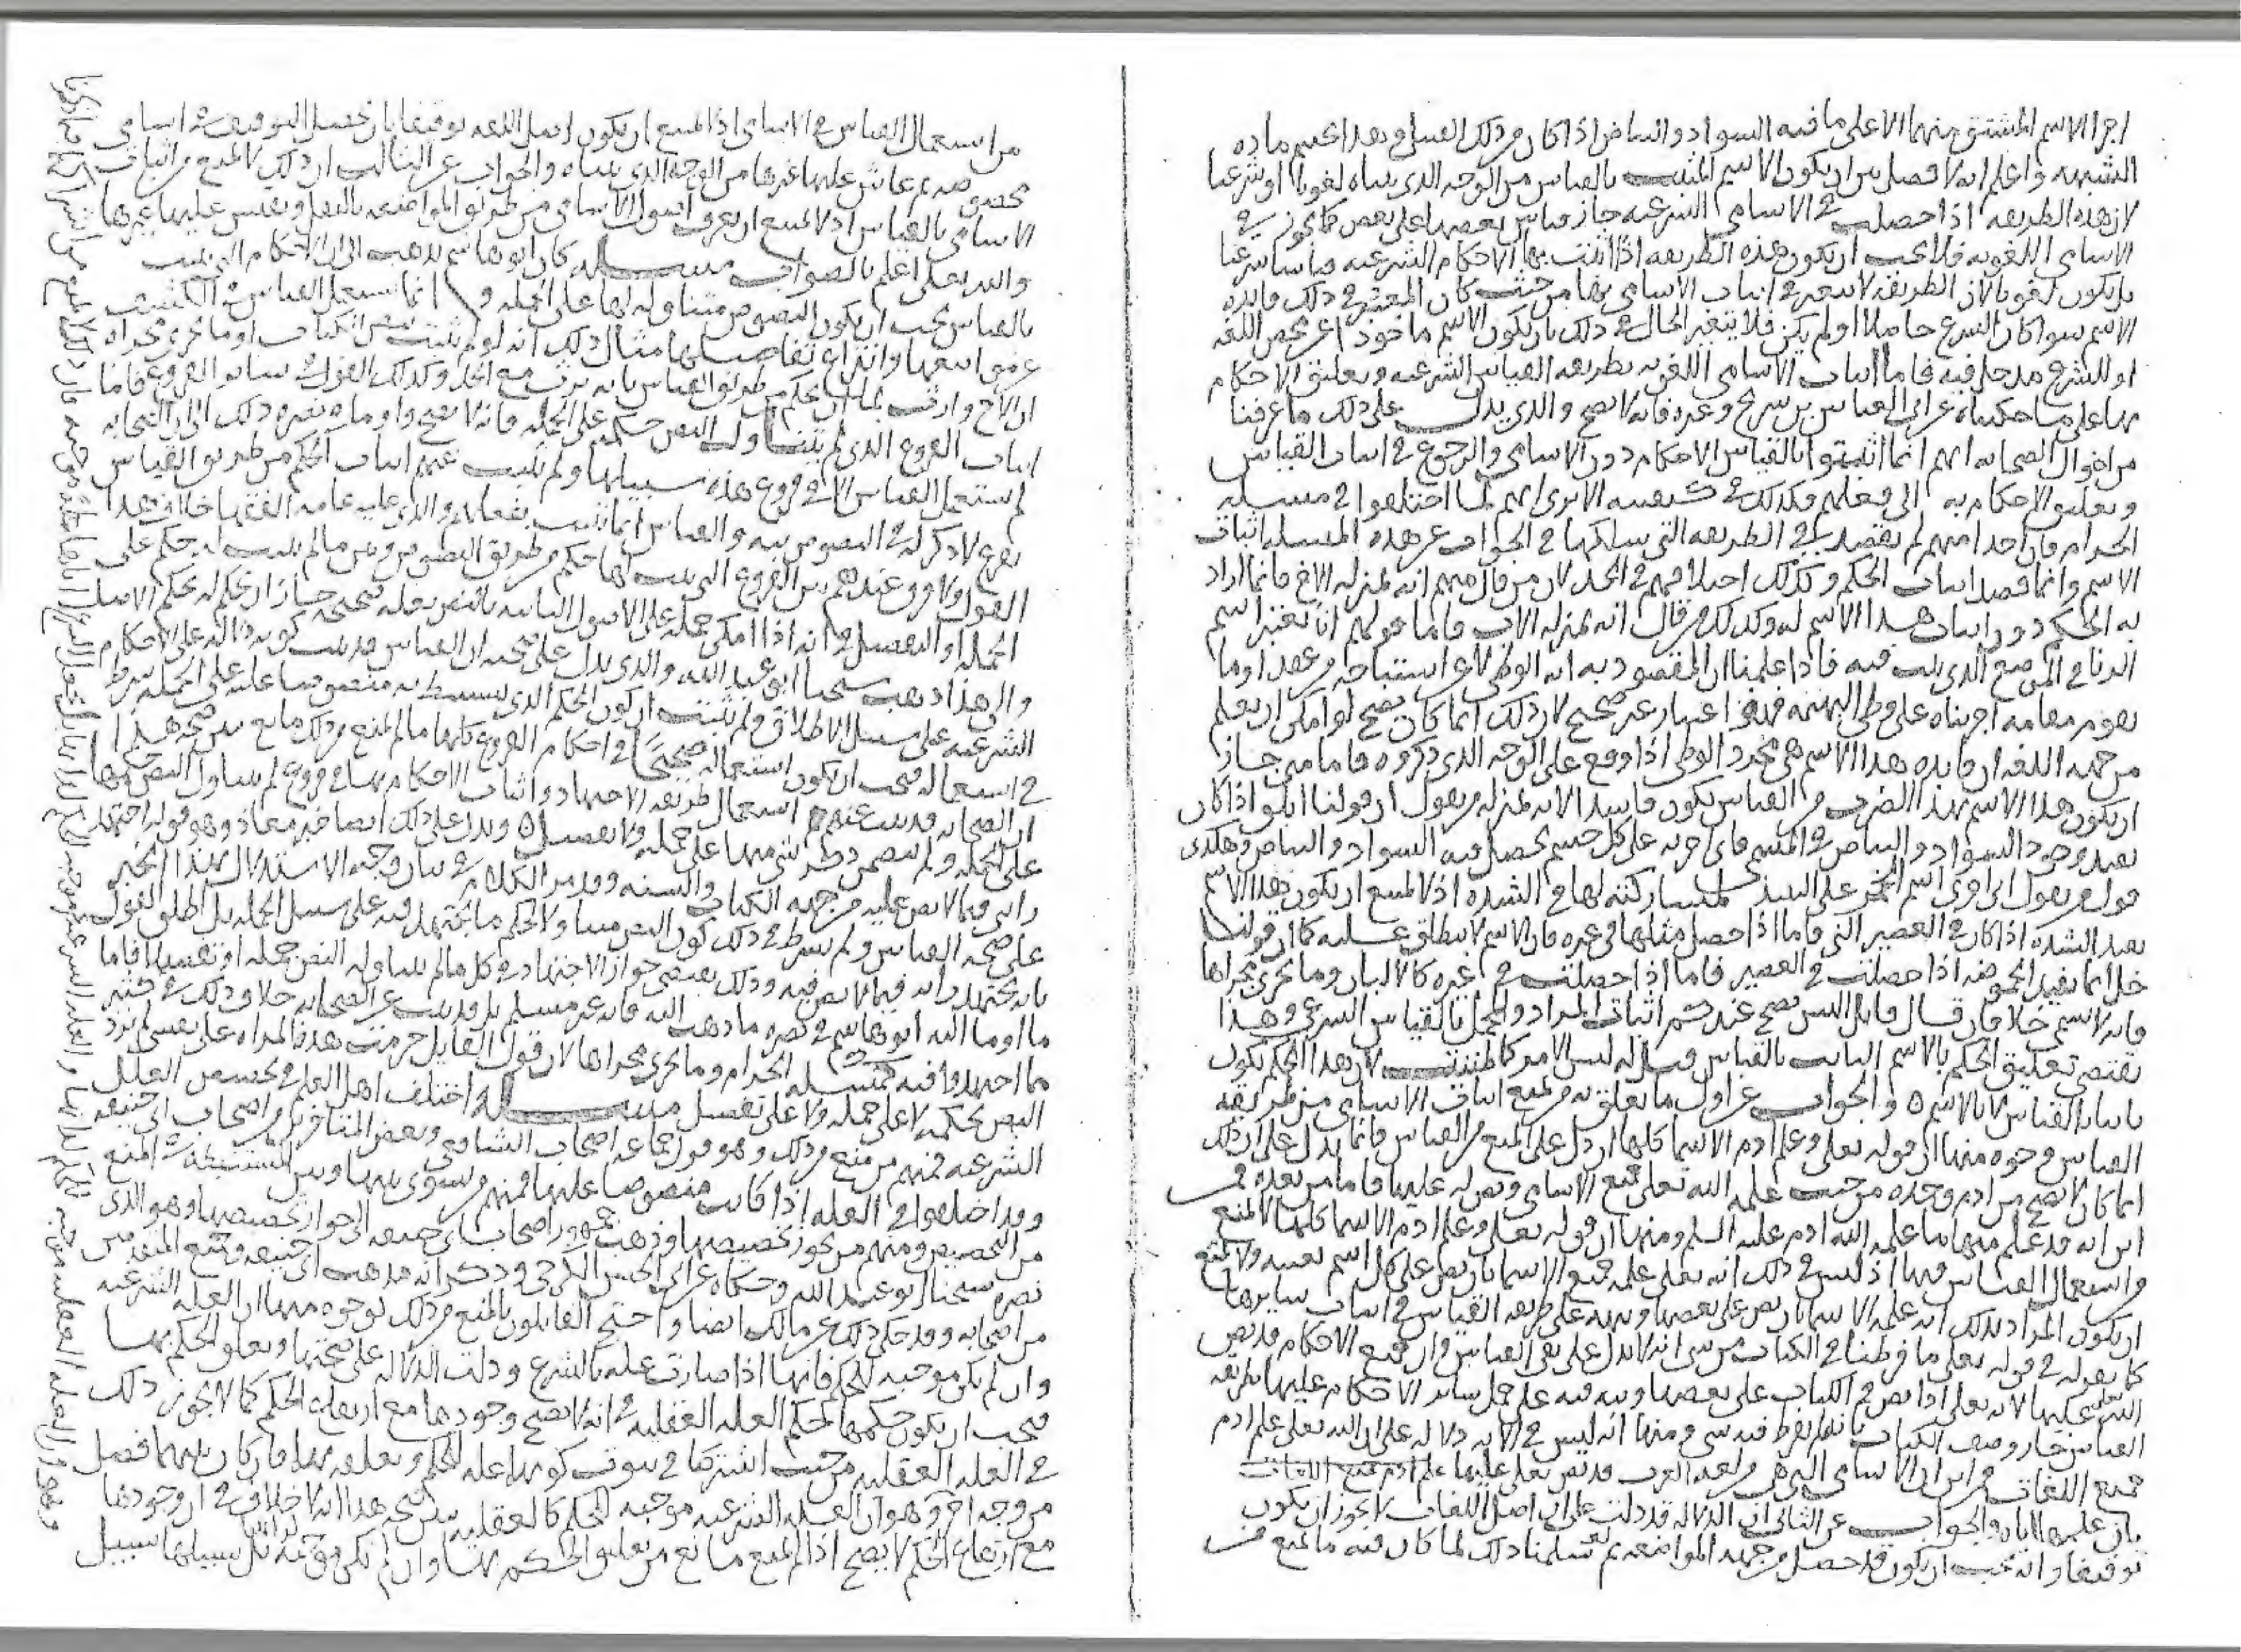 اجرا الاسم المشتق منهما الا على ما فيه السواد والبياض اذا كان من ذلك القبيل وبعد الجسم ماده
الشبهه واعلم انه لا فصل بين ان يكون الاسم المثبت بالقياس من الوجه الذي بيناه لغويا او شرعيا
لان هذه الطريقه اذا حصلت في الاسامي الشرعيه جاز قياس بعضها على بعض كما يجوز في
الاسامي اللغويه فلا يجب ان يكون هذه الطريقه اذا اثبتت بها الاحكام الشرعيه قياسا شرعيا
بل يكون لغويا لان الطريقة لا تتغير في اثبات الاسامي بها من حيث كان المعتبر في ذلك فايده
الاسم سوا كان الشرع حاصلا او لم يكن فلا يتغير الحال في ذلك بان يكون الاسم ماخوذا عن محض اللغه
او للشرع مدخل فيه فاما اثبات الاسامي اللغويه بطريقه القياس الشرعيه وتعليق الاحكام
بها على ما حكيناه عن ابي العباس بن سريج وغيره فانه لا يصح والذي يدل على ذلك ما عرفنا
من احوال الصحابه انهم انما اثبتوا بالقياس الاحكام دون الاسامي والرجوع في اثبات القياس
وتعليق الاحكام به الى فعلهم فكذلك في كيفيته الا ترى انهم لما اختلفوا في مسله
الحرام فان احدا منهم لم يقصد في الطريقه التي سلكها في الجواب عن هذه المسله اثبات
الاسم وانما قصد اثبات الحكم وكذلك اختلافهم في الجد لان من قال منهم انه بمنزله الاخ فانما اراد
به الحكم دون اثبات هذا الاسم له وكذلك من قال انه بمنزله الاب فاما قولهم انا نعتبر اسم
الزنا في الموضع الذي ثبت فيه فاذا علمنا ان المقصود به انه الوطي لا عن استباحه من عقد او ما
يقوم مقامه اجريناه على وطي البهيمه فهو اعتبار غير صحيح لان ذلك انما كان يصح لو امكن ان يعلم
من جهه اللغه ان فايده هذا الاسم هي مجرد الوطي اذا وقع على الوجه الذي ذكروه فاما متى جاز
ان يكون هذا الاسم بهذا الضرب من القياس يكون فاسدا لانه بمنزله من يقول ان قولنا ابلق اذا كان
يفيد وجود السواد والبياض في الجسم فاني اجريه على كل جسم يحصل فيه السواد والبياض وهكذى
قول من يقول اني اجري اسم الخمر على النبيذ لمشاركته لها في الشده اذ لا يمتنع ان يكون هذا الاسم
يفيد الشده اذا كان في العصير الني فاما اذا حصل مثلها في غيره فان الاسم لا ينطلق عليه كما ان قولنا
خل انما يفيد الحموضه اذا حصلت في العصير فاما اذا حصلت في غيره كالالبان وما يجري مجراها
فانه لا يسمى خلا فان قال قايل اليس يصح عندكم اثبات المراد والمجمل بالقياس الشرعي وهذا
يقتضي تعليق الحكم بالاسم الثابت بالقياس قيل له ليس الامر كما ظننت لان هذا الحكم يكون
ثابتا بالقياس لا بالاسم ه والجواب عن اول ما تعلق به من يمنع اثبات الاسامي من طريقه
القياس وجوه منها ان قوله تعلى وعلم ادم الاسما كلها ان دل على المنع من القياس فانما يدل على ان ذلك
انما كان لا يصح من ادم وحده من حيث علمه الله تعلى جميع الاسامي ونص له عليها فاما من بعده فمن
اين انه قد علم منها ما علمه الله ادم عليه السلم ومنها ان قوله تعلى وعلم ادم الاسما كلها لا يمنع
من استعمال القياس فيها اذ ليس في ذلك انه تعلى علمه جميع الاسما بان نص على كل اسم بعينه ولا يمتنع
ان يكون المراد بذلك انه علمه الاسما بان نص على بعضها ونبهه على طريقه القياس في اثبات سايرها
كما يقوله في قوله تعلى ما فرطنا في الكتاب من شي انه لا يدل على نفي القياس وان جميع الاحكام قد نص
عليها لانه تعلى اذا نص في الكتاب على بعضها ونبه فيه على حمل ساير الاحكام عليها بطريقه
القياس جاز وصف الكتاب بانه لم يفرط فيه شي ومنها انه ليس في الايه دلاله على ان الله تعلى علم ادم
جميع اللغات فمن اين ان الاسامي التي هي من لغه العرب قد نص تعلى عليها
بان علمها اياه والجواب عن الثاني ان الدلاله قد دلت على ان اصل اللغات لا يجوز ان يكون
توقيفا وانه يجب ان يكون قد حصل من جهه المواضعه ثم لو سلمنا ذلك لما كان فيه ما يمنع من
من استعمال القياس في الاسامي اذ لا يمتنع ان يكون اصل اللغه توقيفا بان يحصل التوقيف في اسامي
مخصوصه ثم يقاس عليها غيرها من الوجه الذي بيناه والجواب عن الثالث ان ذلك لا يمنع من اثبات
الاسامي بالقياس اذ لا يمتنع ان يعرف اصول الاسامي من طريق المواضعه بالنقل ويقيس عليها غيرها
والله تعلى اعلم بالصواب مسله كان ابو هاشم يذهب الى ان الاحكام التي يثبت
بالقياس يجب ان يكون النصوص متناوله لها على الجمله وانما يستعمل القياس في الكشف
عن مواضعها وانتزاع تفاصيلها مثال ذلك انه لو لم يثبت بنص الكتاب او ما يجري مجراه
ان الاخ وارث لما جاز ان يحكم من طريق القياس بانه يرث مع الجد وكذلك القول في ساير الفروع فاما
اثبات الفروع الذي لم يتناول النص حكمه على الجمله فانه لا يصح واوما في نصره ذلك الى ان الصحابه
لم تستعمل القياس الا في فروع هذه سبيلها ولم يثبت عنهم اثبات الحكم من طريق القياس
بفرع لا ذكر له في النصوص نبه والقياس انما ثبت بفعلهم والذي عليه عامه الفقها خلاف هذا
القول ولا فرق عندهم بين الفروع التي يثبت لها حكم من طريق النصوص وبين ما لم يثبت له حكم على
الجمله او التفصيل في انه اذا امكن حمله على الاصول الثابته بالنص بعله صحيحه جاز ان يحكم له بحكم الاصل
والى هذا ذهب شيخنا ابو عبد الله والذي يدل على صحته ان القياس قد ثبت كونه دلاله على الاحكام
الشرعيه على سبيل الاطلاق ولم يثبت ان كون الحكم الذي يستنبط به منصوصا عليه على الجمله شرط
في استعماله فيجب ان يكون استعماله صحيحا في احكام الفروع كلها ما لم يمنع من ذلك مانع يبين صحه هذا
ان الصحابه قد ثبت عنهم استعمال طريقه الاجتهاد واثبات الاحكام بها في فروع لم يتناول النص حكمها
على الجمله ولم ينصص ذكر شي منها على جمله ولا تفصيل ه ويدل على ذلك ايضا خبر معاذ وهو قوله اجتهد
رايي فيما لا نص عليه من جهه الكتاب والسنه وقد مر الكلام في بيان وجه الاستدلال بهذا الخبر
على صحه القياس ولم يشرط في ذلك كون النص متناولا لحكم ما يجتهد فيه على سبيل الجمله بل اطلق القول
بانه يجتهد رايه فيما لا نص فيه وذلك يقتضي جواز الاجتهاد في كل ما لم يتناوله النص جمله او تفصيلا فاما
ما اوما اليه ابو هاشم في نصره ما ذهب اليه فانه غير مسلم بل قد ثبت عن الصحابه خلاف ذلك في كثير
مما اجتهدوا فيه كمسله الحرام وما يجري مجراها لان قول القايل حرمت هذه المراه على نفسي لم يرد
النص بحكمه لا على جمله ولا على تفصيل مسله اختلف اهل العلم في تخصيص العلل
الشرعيه فمنهم من منع من ذلك وهو قول جماعه اصحاب الشافعي وبعض المتاخرين من اصحاب ابي حنيفه
وقد اختلفوا في العله اذا كانت منصوصا عليها فمنهم من سوى بينها وبين المستنبطه في المنع
من التخصيص ومنهم من يجوز تخصيصها وذهب جمهور اصحاب ابي حنيفه الى جواز تخصيصها وهو الذي
نصره شيخنا ابو عبد الله وحكاه عن ابي الحسن الكرخي وذكر انه مذهب ابي حنيفه وجميع المتقدمين
من اصحابه وقد حكي ذلك عن مالك ايضا واحتج القايلون بالمنع من ذلك بوجوه منها ان العله الشرعيه
وان لم يكن موجبه للحكم فانها اذا صارت عله بالشرع ودلت الدلاله على صحتها وتعلق الحكم بها
فيجب ان يكون حكمها حكم العله العقليه في انه لا يصح وجودها مع ارتفاع الحكم كما لا يجوز ذلك
في العله العقليه من حيث اشتركا في ثبوت كونهما عله للحكم وتعلقه بهما وان كان بينهما فصل
من وجه اخر وهو ان العله الشرعيه موجبه للحكم كالعقليه يبين صحه هذا انه لا خلاف في ان وجودها
مع ارتفاع الحكم لا يصح اذا لم يمنع مانع من تعليق الحكم بها وان لم تكن موجبه بل سبيلها سبيل